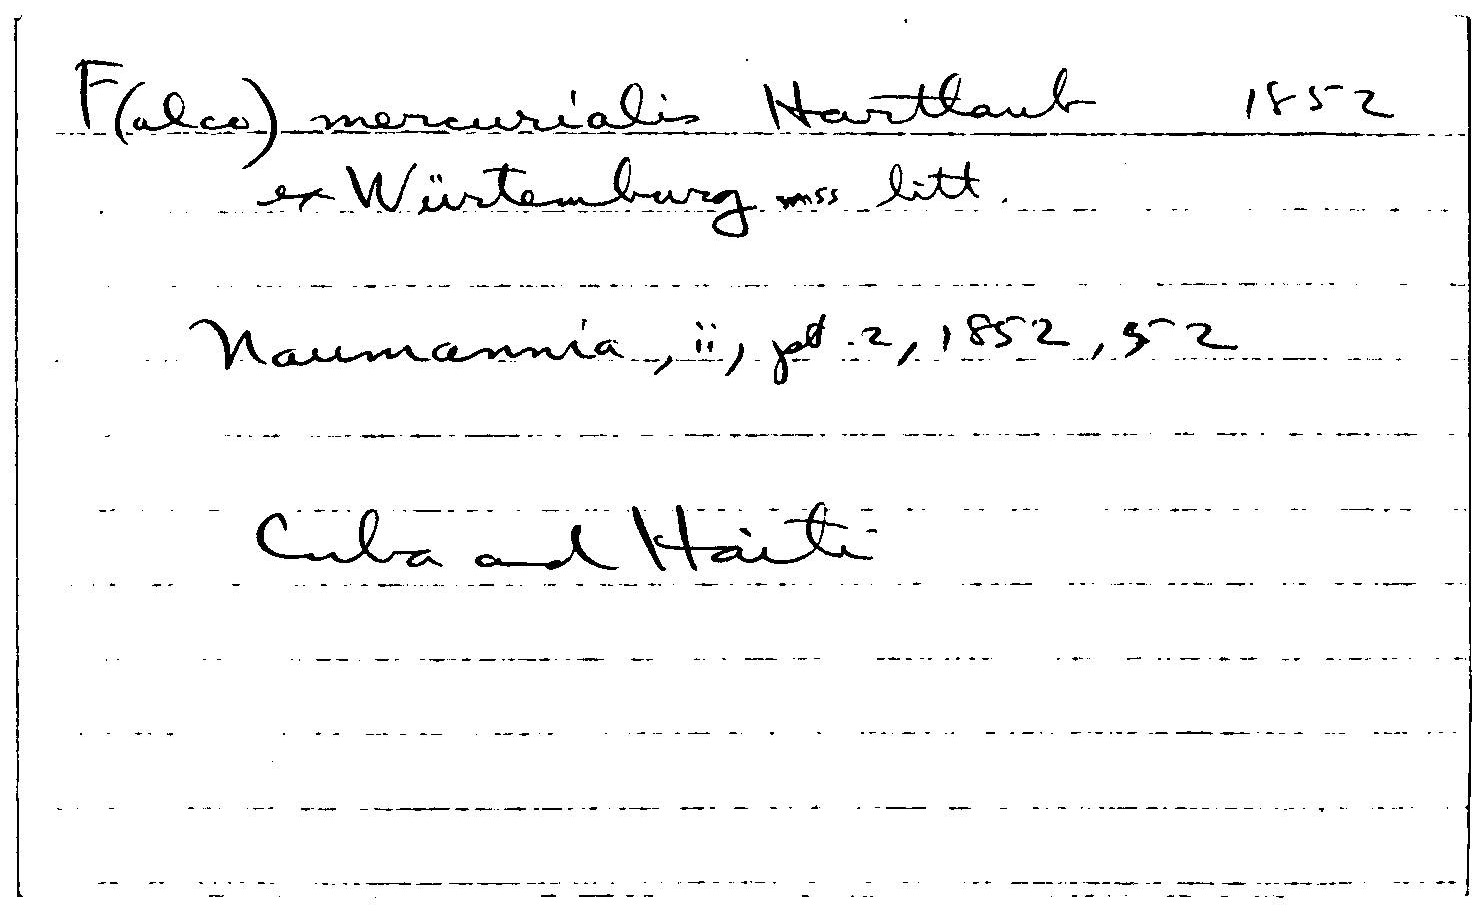 F(alco) mercurialis Hartlaub 1852
ex Würtemburg mss litt.
Naumannia, ii, pt. 2, 1852, 52
Cuba and Haiti